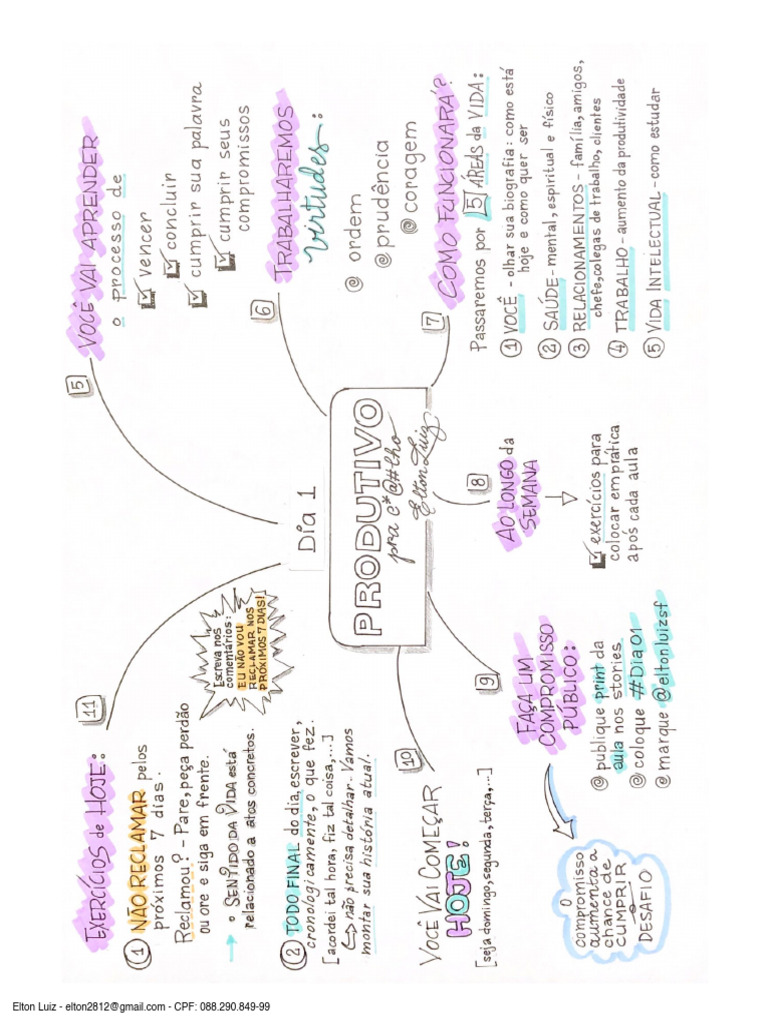 Dia 1
PRODUTIVO
pra c*@#lho
Elton Luiz
5
VOCÊ VAI APRENDER
o processo de
vencer
concluir
cumprir sua palavra
cumprir seus
compromissos
6
TRABALHAREMOS
virtudes:
@ ordem
@ prudência
@ coragem
7
COMO FUNCIONARÁ?
Passaremos por 5 ÁREAS da VIDA:
1 VOCÊ - olhar sua biografia: como está
hoje e como quer ser
2 SAÚDE - mental, espiritual e físico
3 RELACIONAMENTOS - família, amigos,
chefe, colegas de trabalho, clientes
4 TRABALHO - aumento da produtividade
5 VIDA INTELECTUAL - como estudar
8
AO LONGO da
SEMANA
exercícios para
colocar em prática
após cada aula
9
FAÇA UM
COMPROMISSO
PÚBLICO:
@ publique print da
aula nos stories
@ coloque #Dia01
@ marque @eltonluizsf
O
compromisso
aumenta a
chance de
CUMPRIR
o
DESAFIO
10
VOCÊ VAI COMEÇAR
HOJE!
[seja domingo, segunda, terça,...]
11
EXERCÍCIOS de HOJE:
1 NÃO RECLAMAR pelos
próximos 7 dias.
Reclamou? - Pare, peça perdão
ou ore e siga em frente.
→ o SENTIDO DA VIDA está
relacionado a atos concretos.
Escreva nos
comentários:
EU NÃO VOU
RECLAMAR NOS
PRÓXIMOS 7 DIAS!
2 TODO FINAL do dia, escrever,
cronologicamente, o que fez.
[acordei tal hora, fiz tal coisa,...]
↳ não precisa detalhar - Vamos
montar sua história atual.
Elton Luiz - elton2812@gmail.com - CPF: 088.290.849-99